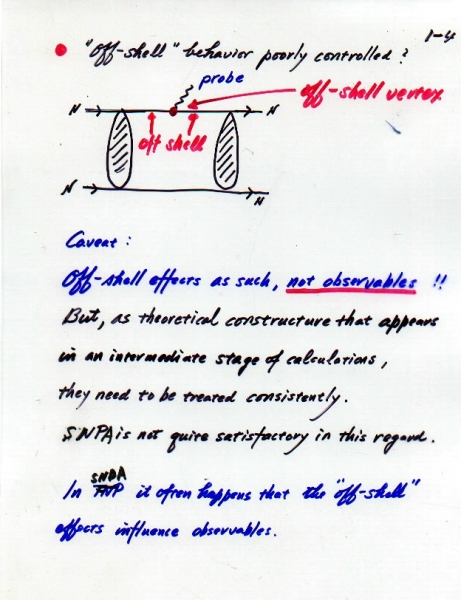 1-4
"Off-shell" behavior poorly controlled?
probe
off-shell vertex
N N
off shell
N N
Caveat :
Off-shell effects as such, not observables !!
But, as theoretical constructure that appears
in an intermediate stage of calculations,
they need to be treated consistently.
SNPA is not quite satisfactory in this regard.
SNPA
In it often happens that the "off-shell"
effects influence observables.